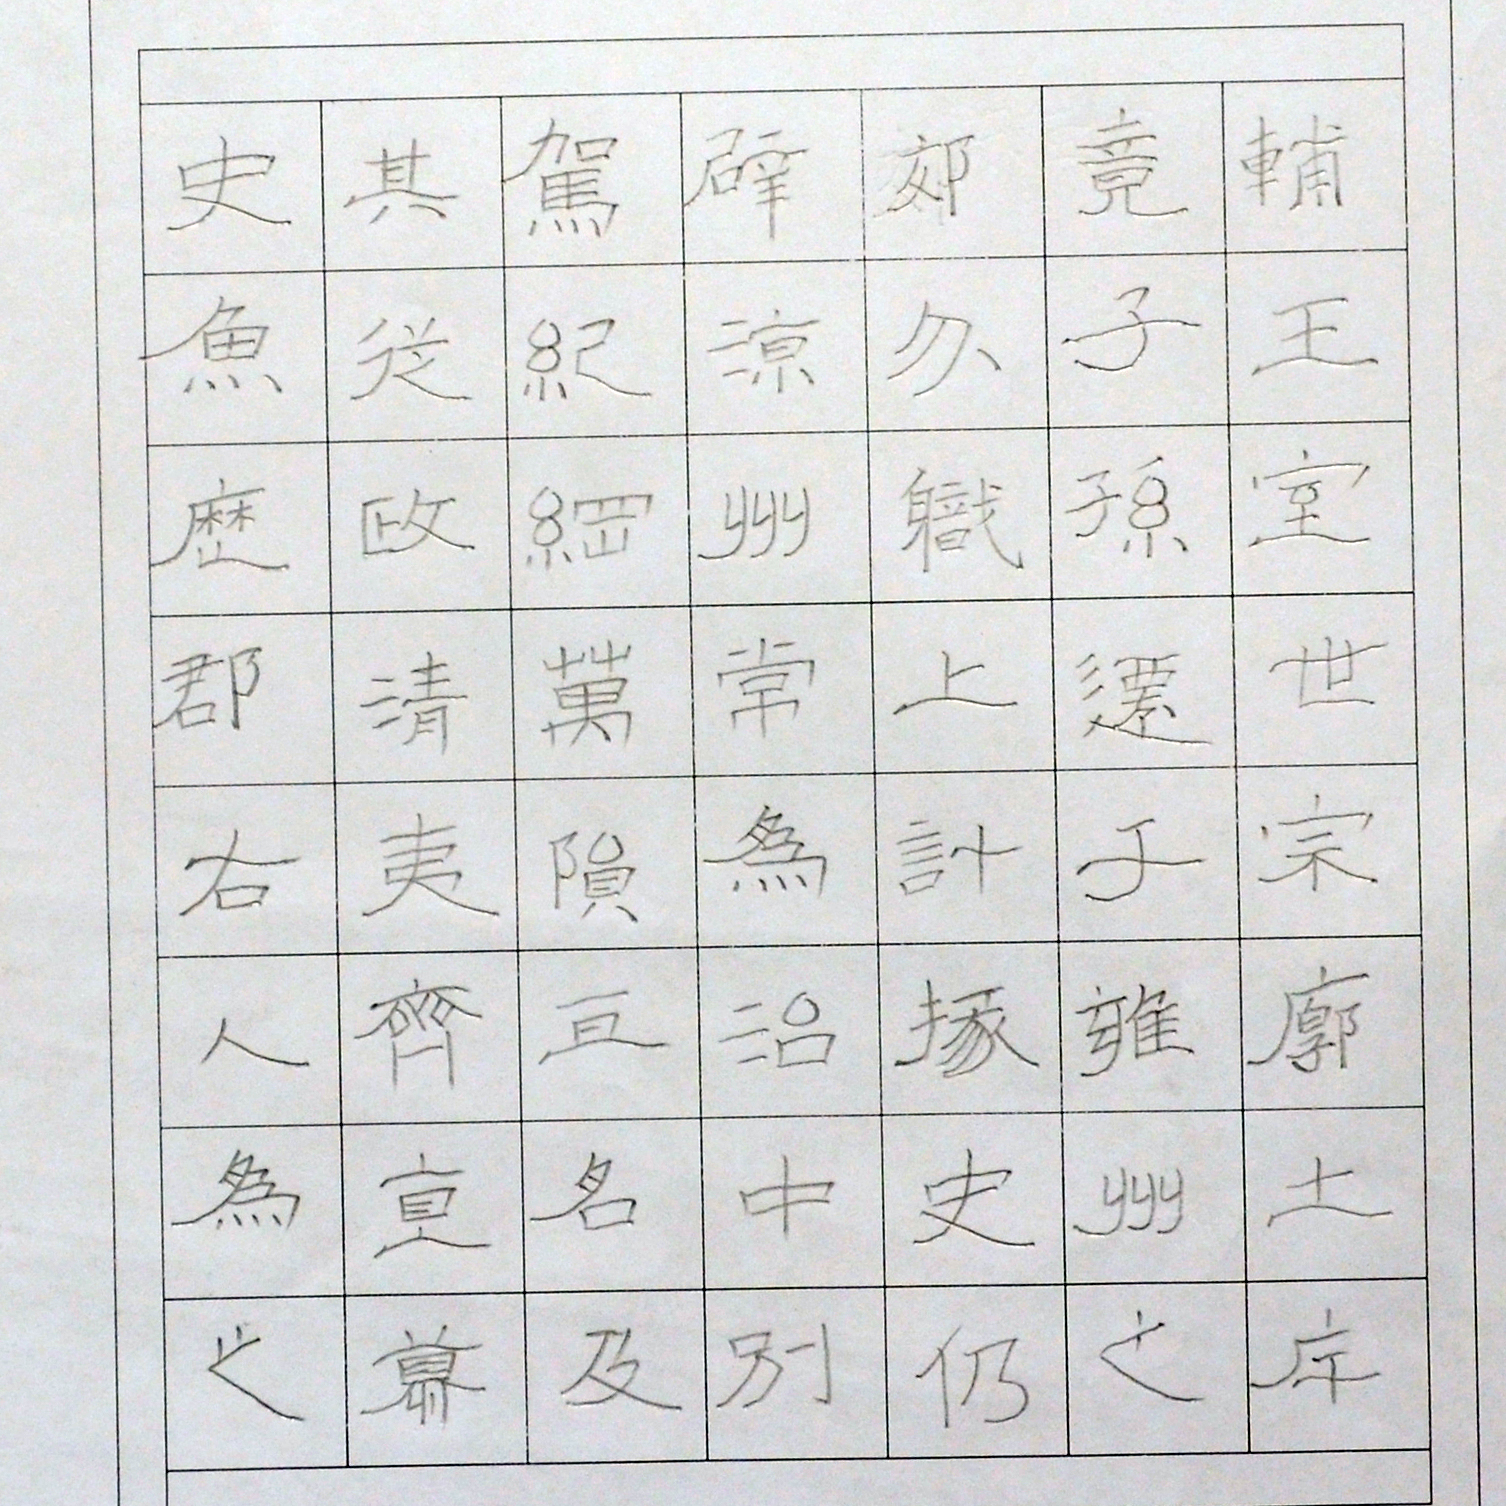 輔王室世宗廓土斥
竟子孫遷于雍州之
郊分職上計掾史仍
辟涼州常為治中別
駕紀綱萬隕亘名及
其從政清夷齊直慕
史魚歷郡右人為之